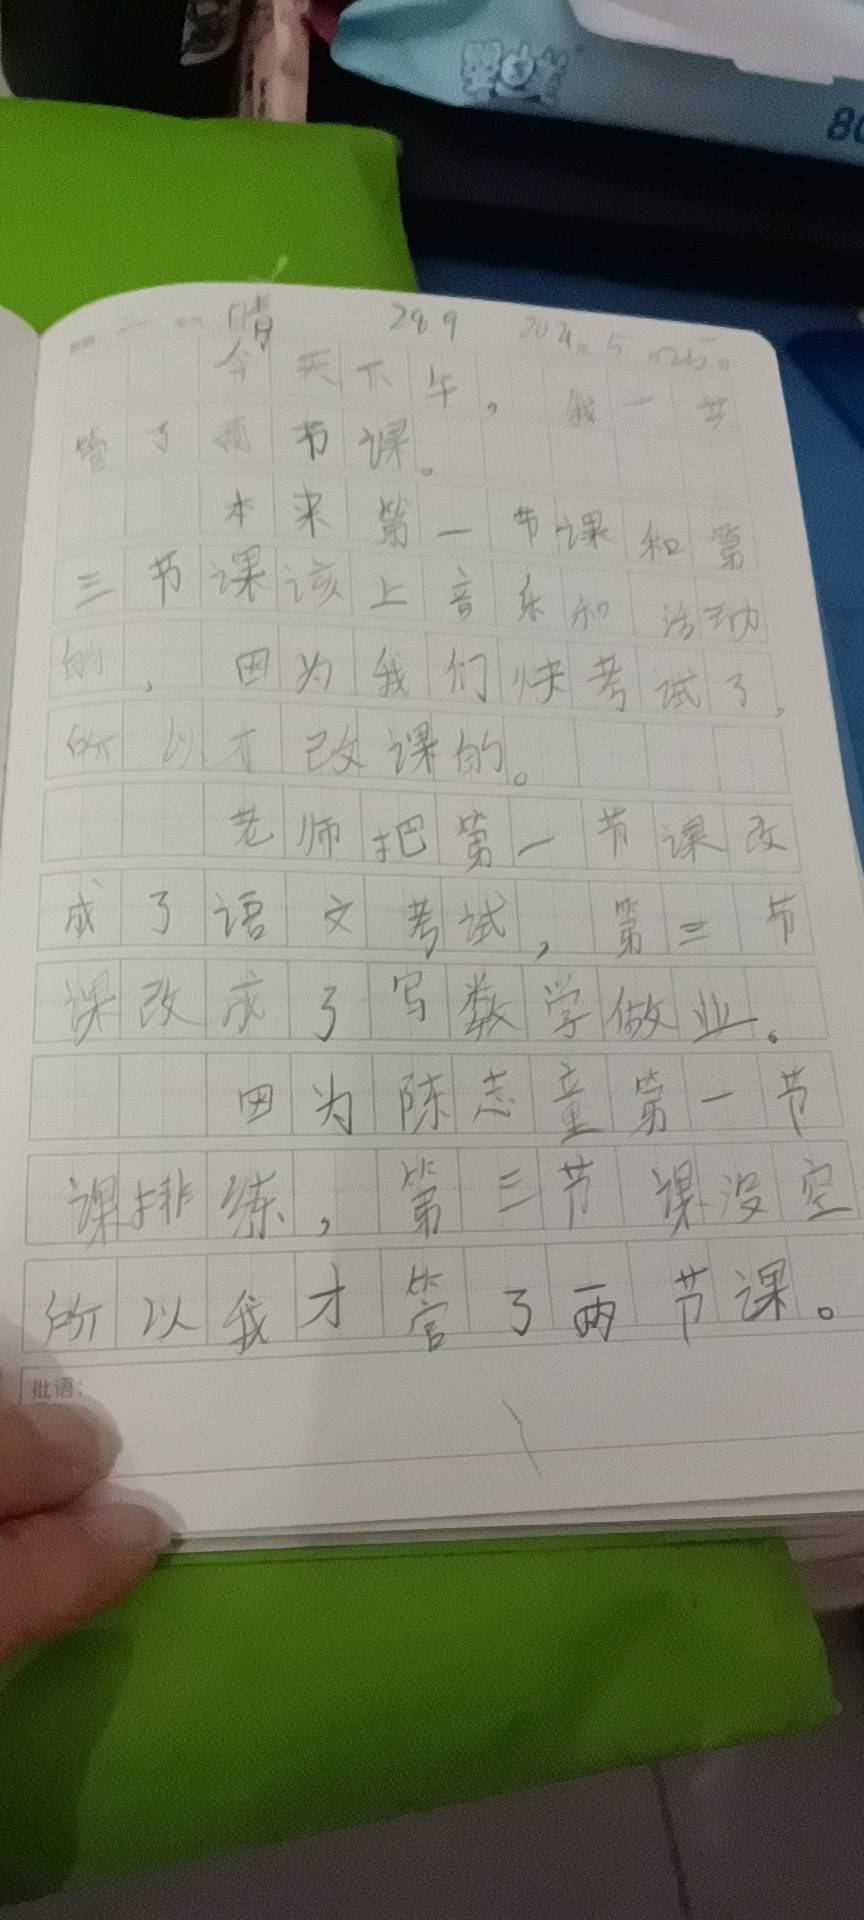 婴
80
二 晴 289 2024年5
今天下午，我一共
管了两节课。
本来第一节课和第
三节课该上音乐和活动
的，因为我们快考试了，
所以才改课的。
老师把第一节课改
成了语文考试，第三节
课改成了写数学做业。
因为陈志童第一节
课排练，第三节课没空
所以我才管了两节课。
批语：